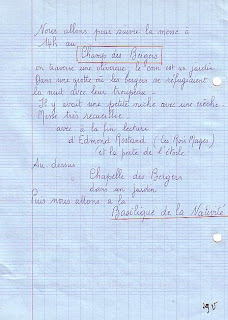 Nous allons pour suivre la messe à
14h au
Champ des Bergers
on traverse une oliveraie le coin est un jardin
Dans une grotte où les bergers se réfugiaient
la nuit avec leur troupeau -
Il y avait une petite niche avec une crèche
Messe très recueillie
avec à la fin lecture
d'Edmond Rostand (Les Rois Mages)
(et la perte de l'étoile
Au dessus
Chapelle des Bergers
dans un jardin
Puis nous allons à la
Basilique de la Nativité